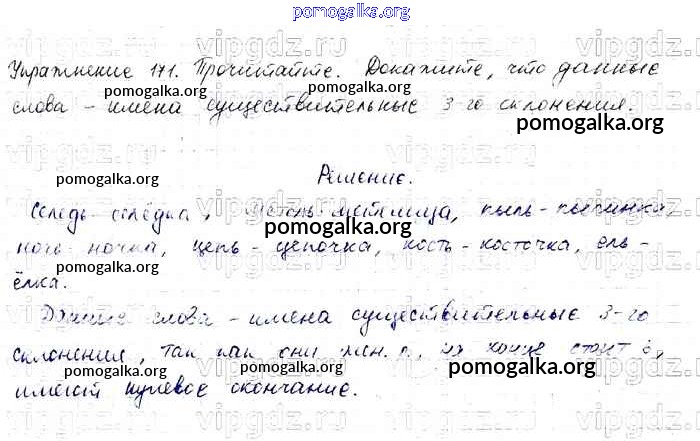 pomogalka.org
Упражнение 171. Прочитайте. Докажите, что данные
слова - имена существительные 3-го склонения.
pomogalka.org
pomogalka.org
pomogalka.org
Решение.
pomogalka.org
Сельдь - селёдка, метель - метелица, пыль - пылинка,
ночь - ночка, цепь - цепочка, кость - косточка, ель -
ёлка.
pomogalka.org
pomogalka.org
Данные слова - имена существительные 3-го
склонения, так как они жен. р., на конце стоит ь,
pomogalka.org
имеют нулевое окончание.
pomogalka.org
pomogalka.org
vipgdz.ru